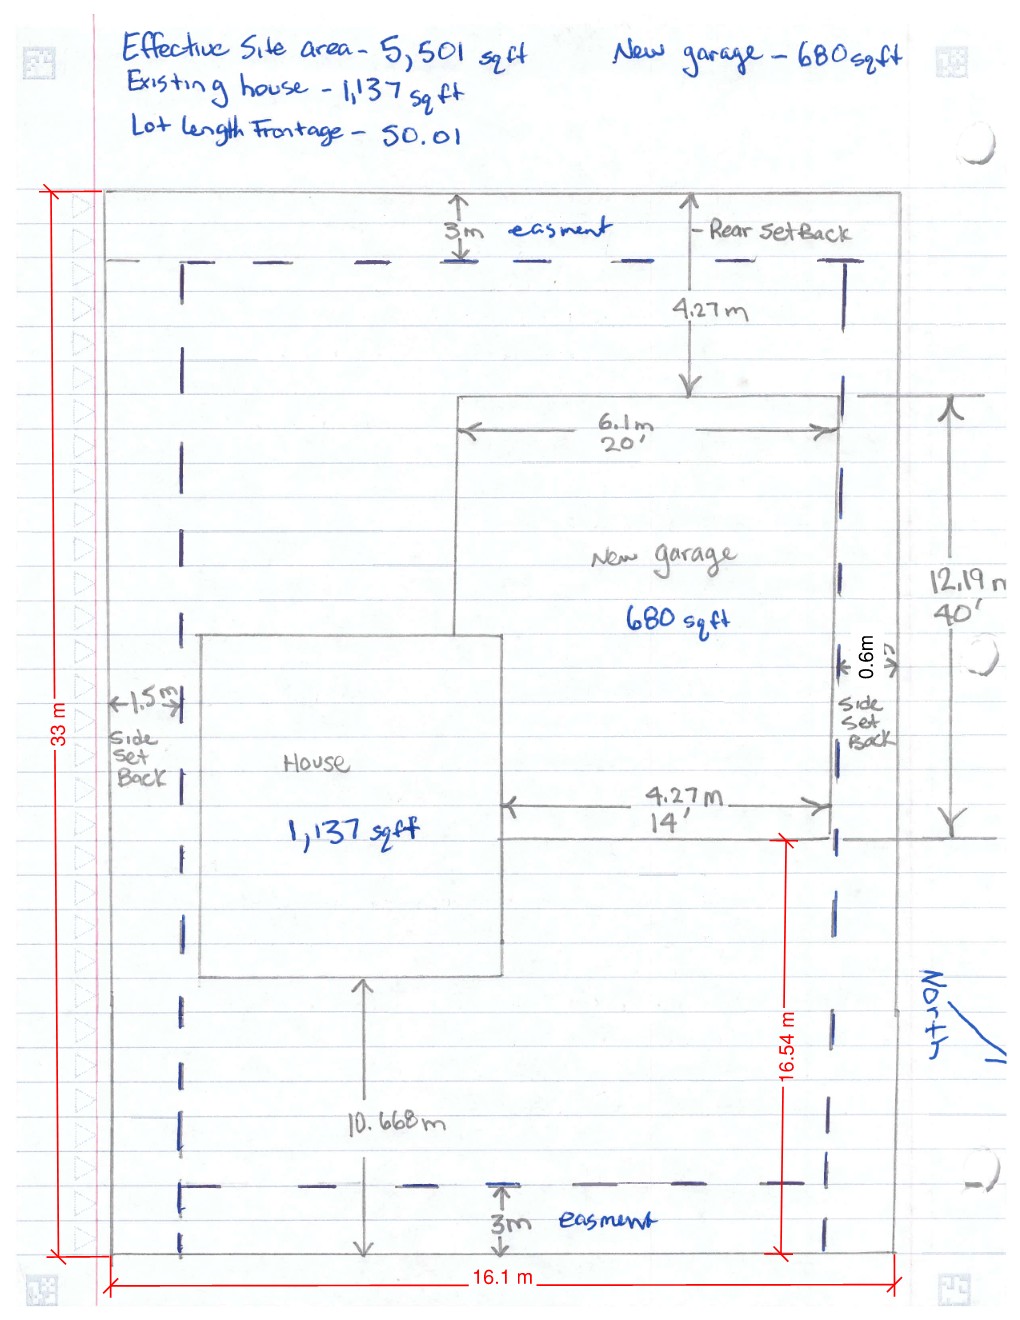 Effective Site area - 5,501 sqft
New garage - 680 sqft
Existing house - 1,137 sqft
Lot length Frontage - 50.01
3m easment
- Rear SetBack
4.27m
6.1m
20'
New garage
680 sqft
12.19
40'
0.6m
Side
Set
Back
1.5m
Side
Set
Back
33 m
House
1,137 sqft
4.27m
14'
North
16.54 m
10.668m
3m easment
16.1 m